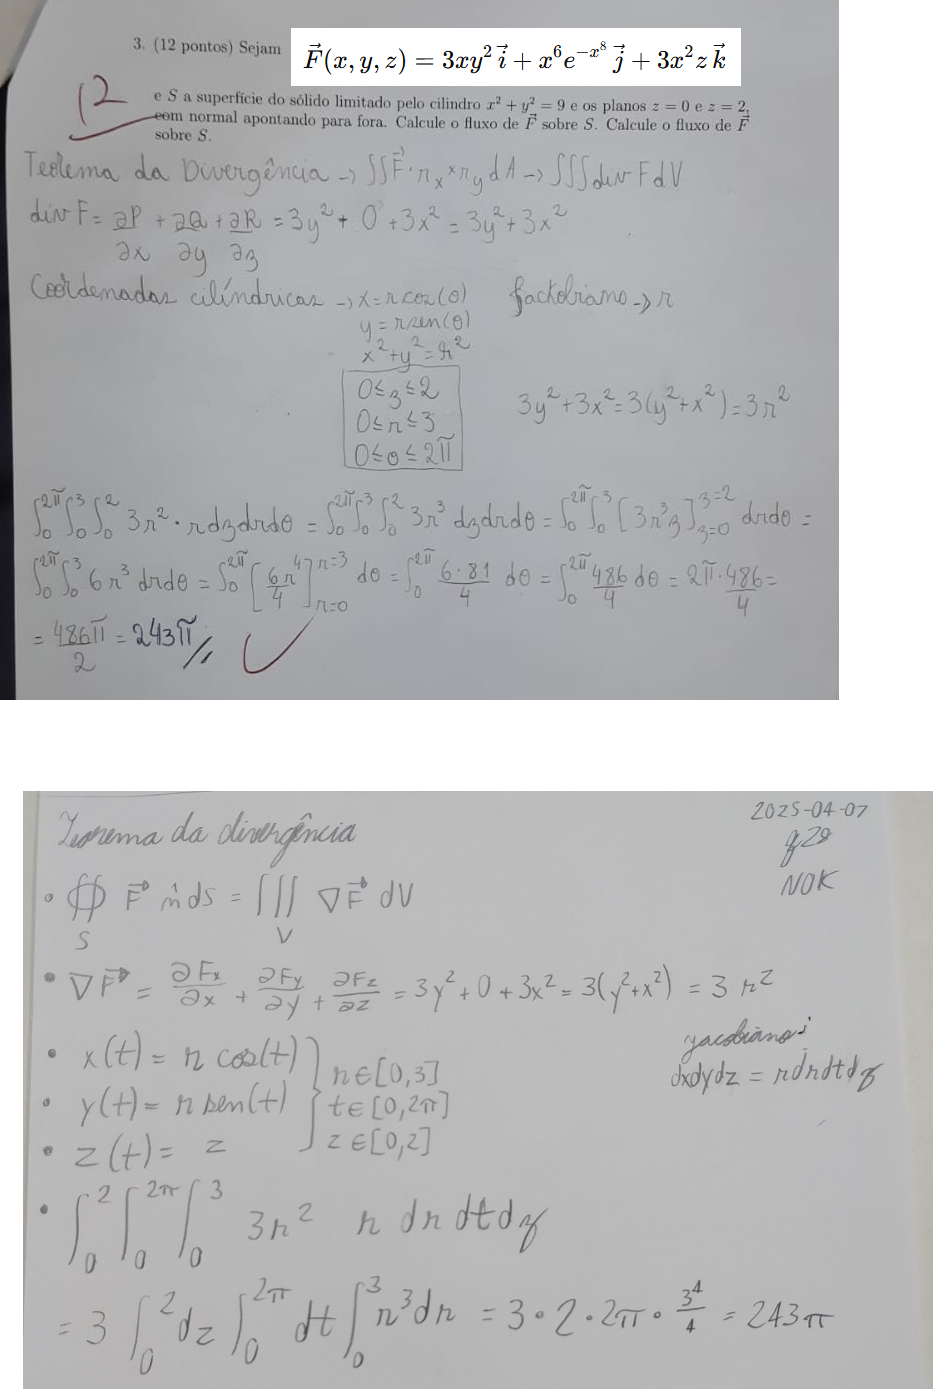 3. (12 pontos) Sejam
F⃗(x, y, z) = 3xy² i⃗ + x⁶e^{-x⁸} j⃗ + 3x²z k⃗
12
e S a superfície do sólido limitado pelo cilindro x² + y² = 9 e os planos z = 0 e z = 2,
com normal apontando para fora. Calcule o fluxo de F⃗ sobre S. Calcule o fluxo de F⃗
sobre S.
Teorema da Divergência → ∬F⃗·r_x×r_y dA → ∭div F dV
div F = ∂P/∂x + ∂Q/∂y + ∂R/∂z = 3y² + 0 + 3x² = 3y² + 3x²
Coordenadas cilíndricas → x = r cos(θ) Jackobiano → r
y = r sen(θ)
x² + y² = r²
0 ≤ z ≤ 2
0 ≤ r ≤ 3
0 ≤ θ ≤ 2π
3y² + 3x² = 3(y² + x²) = 3r²
∫₀^{2π}∫₀³∫₀² 3r²·r dz dr dθ = ∫₀^{2π}∫₀³∫₀² 3r³ dz dr dθ = ∫₀^{2π}∫₀³ [3r³z]_{z=0}^{z=2} dr dθ =
∫₀^{2π}∫₀³ 6r³ dr dθ = ∫₀^{2π} [6r⁴/4]_{r=0}^{r=3} dθ = ∫₀^{2π} 6·81/4 dθ = ∫₀^{2π} 486/4 dθ = 2π·486/4 =
= 486π/2 = 243π//
Teorema da divergência
2025-04-07
q29
NOK
• ∯_S F⃗ n̂ ds = ∭_V ∇F⃗ dV
• ∇F⃗ = ∂Fx/∂x + ∂Fy/∂y + ∂Fz/∂z = 3y² + 0 + 3x² = 3(y² + x²) = 3 r²
jacobiano:
dxdydz = r dr dt dz
• x(t) = r cos(t) } r ∈ [0,3]
• y(t) = r sen(t) } t ∈ [0,2π]
• z(t) = z } z ∈ [0,2]
• ∫₀² ∫₀^{2π} ∫₀³ 3r² r dr dt dz
= 3 ∫₀² dz ∫₀^{2π} dt ∫₀³ r³ dr = 3 · 2 · 2π · 3⁴/4 = 243π